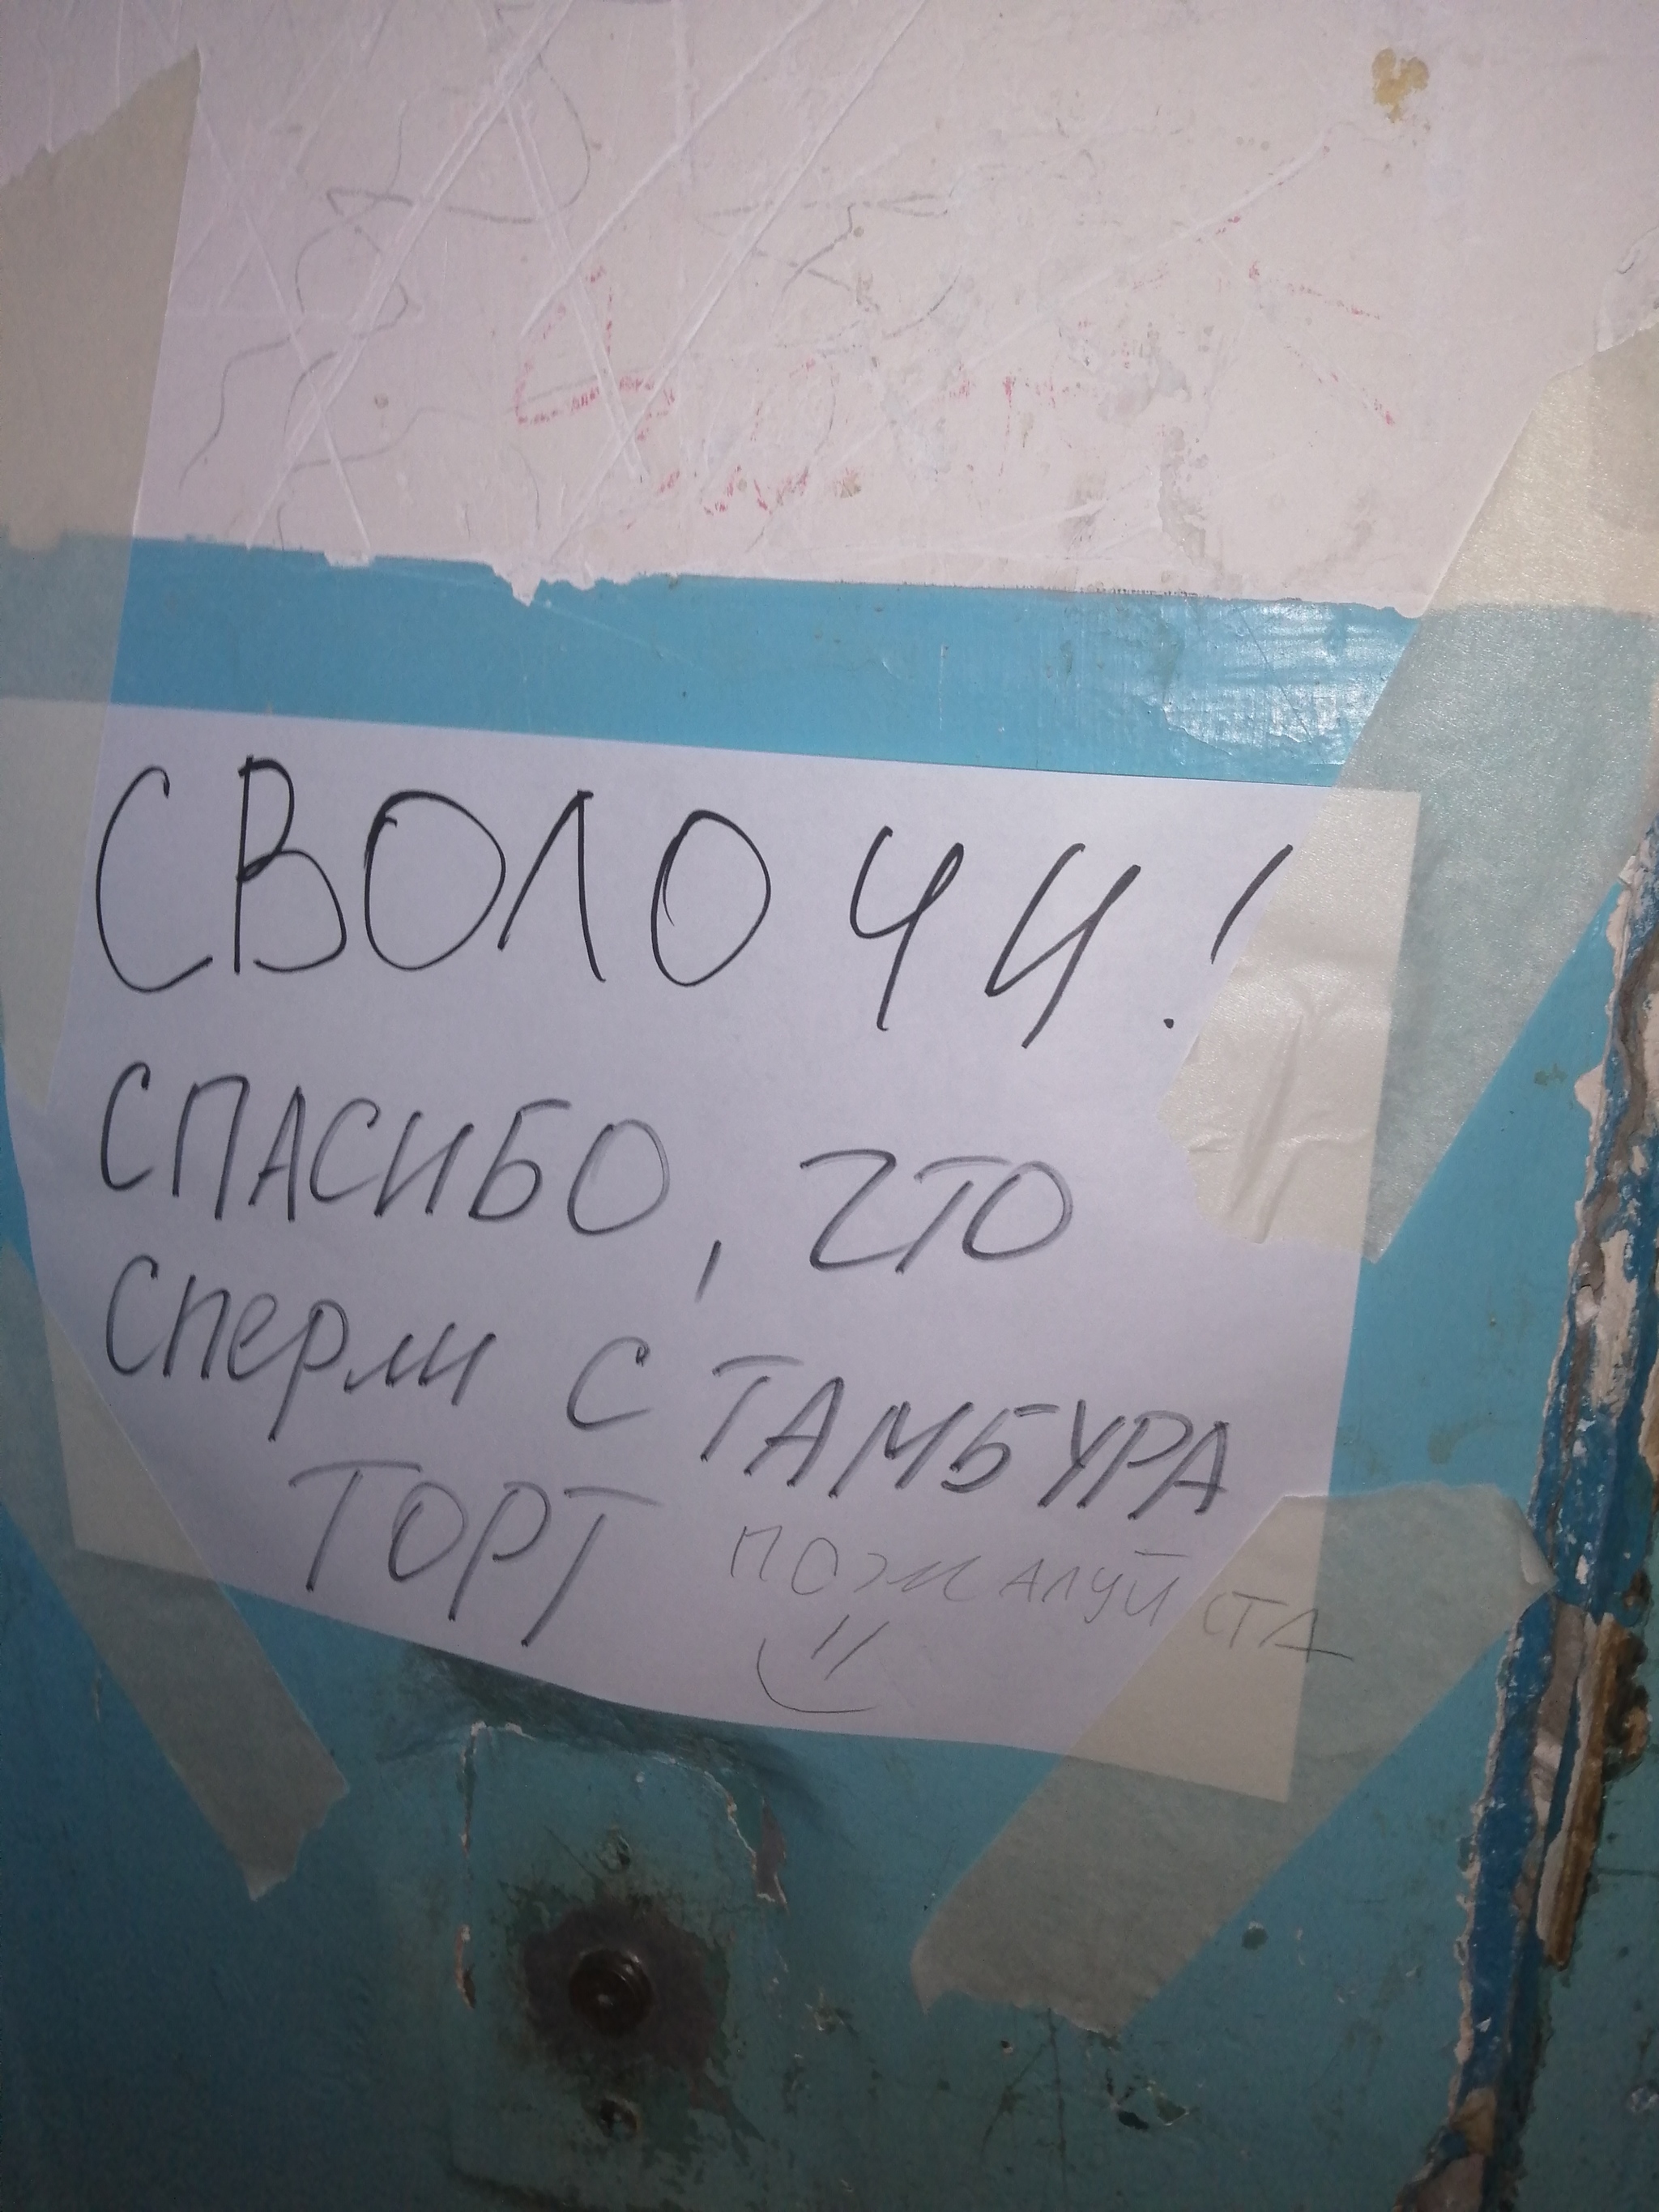 СВОЛОЧИ!
СПАСИБО, ЧТО
СПЕРЛИ С ТАМБУРА
ТОРТ ПОЖАЛУЙСТА